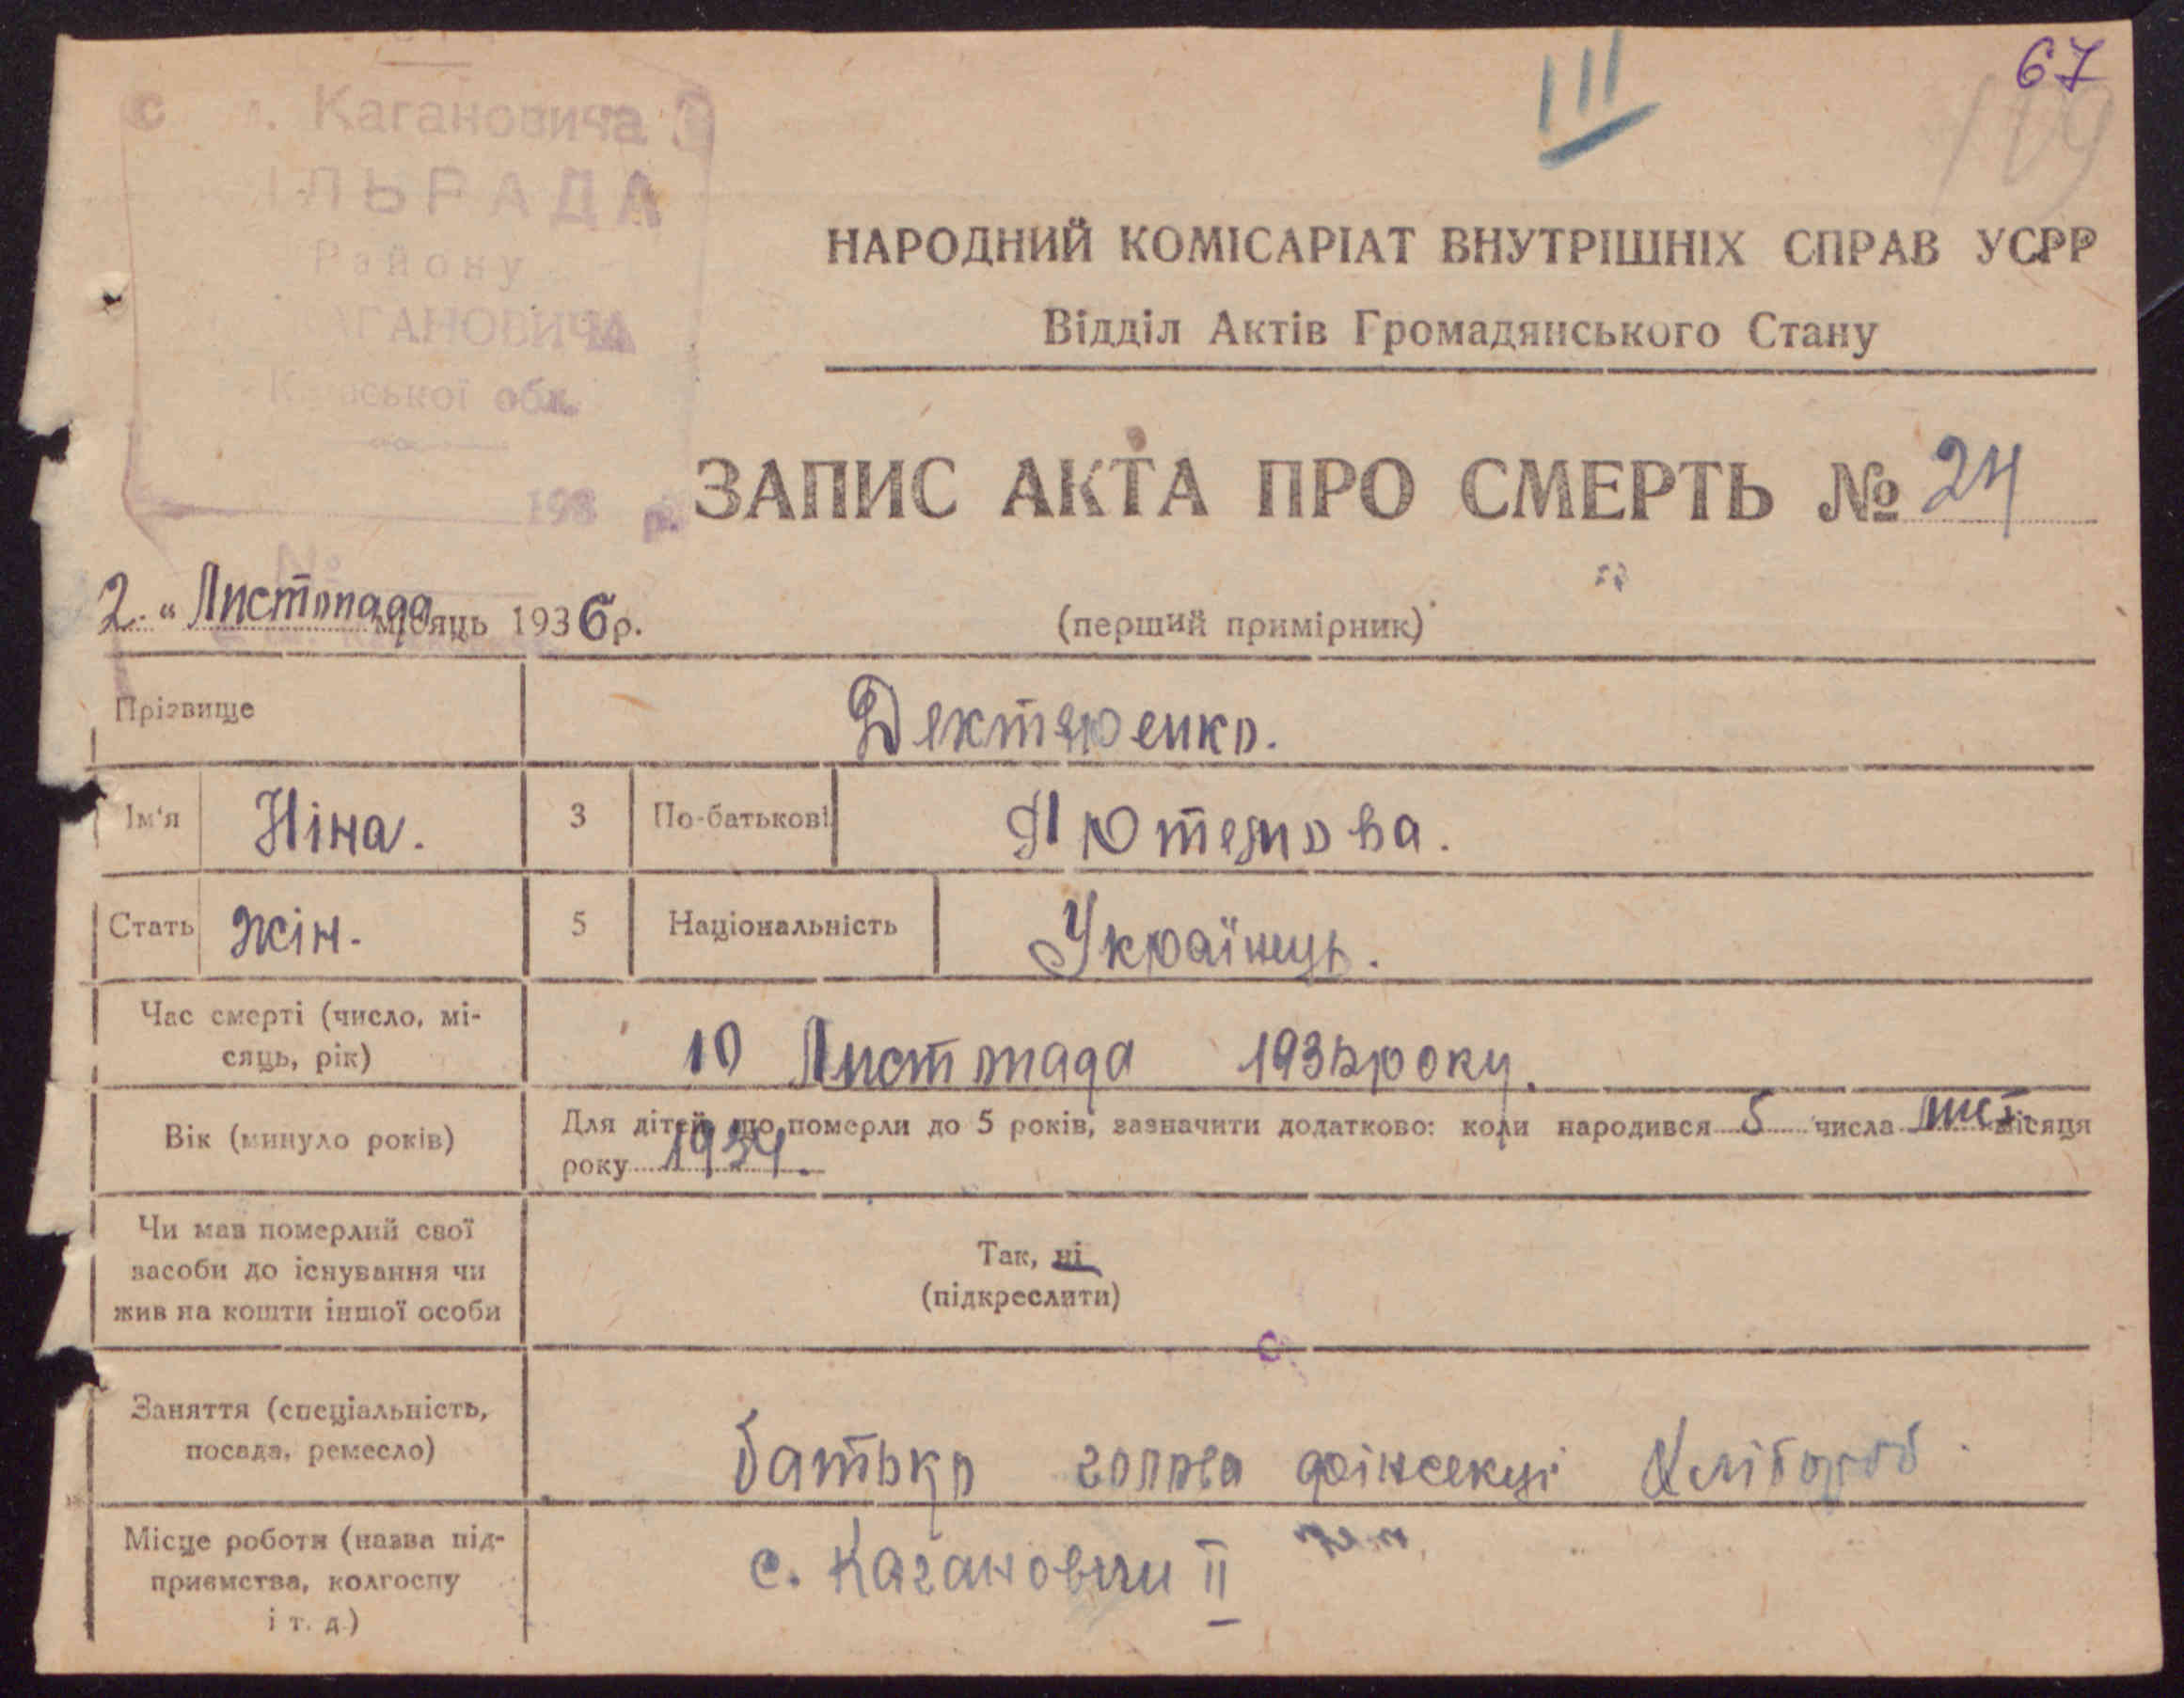 67
III
109
Кагановича
ІЛЬРАДА
Району
КАГАНОВИЧА
обл.
193 р.
№
НАРОДНИЙ КОМІСАРІАТ ВНУТРІШНІХ СПРАВ УСРР
Відділ Актів Громадянського Стану
ЗАПИС АКТА ПРО СМЕРТЬ № 24
2. " Листопада місяць 1936 р.
(перший примірник)
Прізвище
Дектяренко.
Ім'я Ніна. 3 По-батькові
Стать жін. 5 Національність Українець.
Час смерті (число, мі-
сяць, рік)
10 Листопада 193 року.
Вік (минуло років)
Для дітей, що померли до 5 років, зазначити додатково: коли народився 5 числа лист. місяця
року 1934.
Чи мав померлий свої
засоби до існування чи
жив на кошти іншої особи
Так, ні
(підкреслити)
Заняття (спеціальність,
посада, ремесло)
батько голова фінсекції Хлібороб.
Місце роботи (назва під-
приємства, колгоспу
і т. д.)
с. Кагановичи II